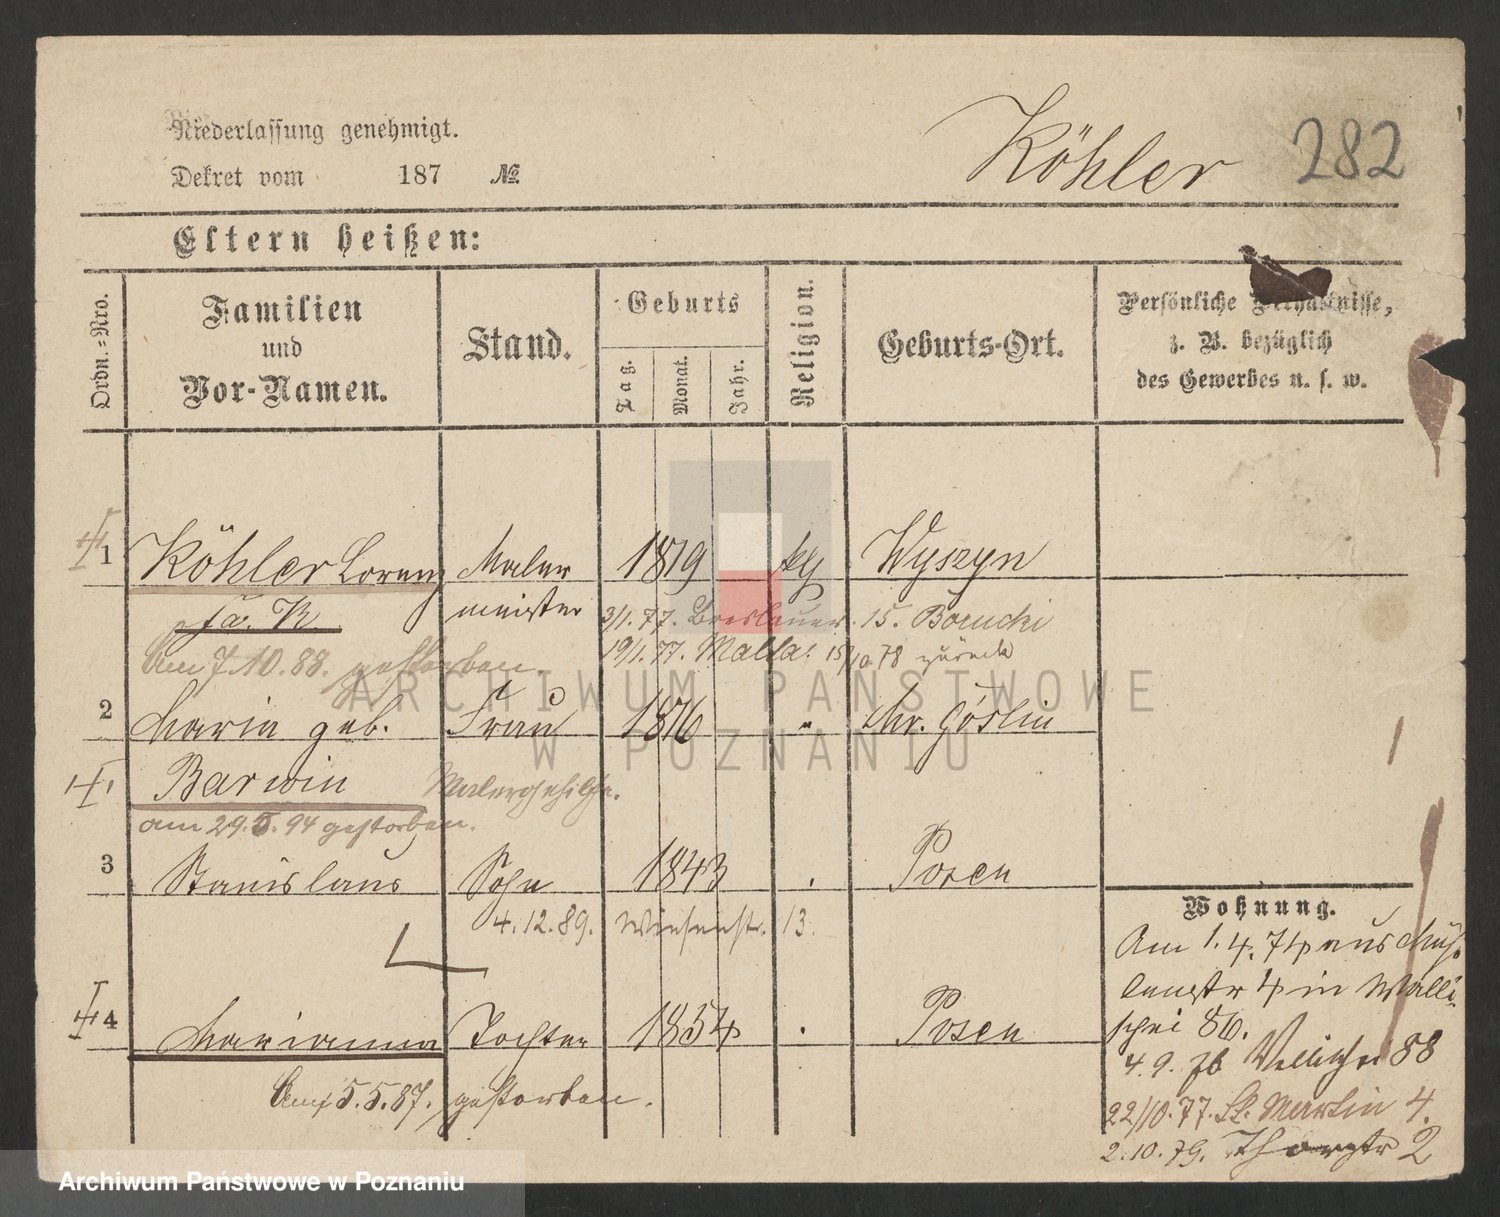 Niederlassung genehmigt.
Dekret vom 187 №
Köhler 282
Eltern heißen:
Ordn.-Nro.
Familien
und
Vor-Namen.
Stand.
Geburts
Tag.
Monat.
Jahr.
Religion.
Geburts-Ort.
Persönliche Verhältnisse,
z. B. bezüglich
des Gewerbes u. s. w.
1 Köhler Lorenz Maler 1819 kg Wyszyn
meister
3/1. 77. Breslauer. 15. Bocuchi
19/1. 77. Malta. 15/10 78 zurück
am 7.10.88. gestorben.
2 Maria geb. Frau 1816 " Mr. Goslin
Barwin Malergehilfe.
am 29.5.94 gestorben.
3 Stanislaus Sohn 1843 . Posen
4.12.89. Wiesenstr. 13.
Wohnung.
Am 1. 4. 74 aus Müh-
lenstr 4 in Walli-
schei 86.
4 Marianna Tochter 1854 . Posen
4. 9. 76 Wallischei 88
am 5.5.87. gestorben.
22/10. 77. St. Martin 4.
2. 10. 79. Thorstr 2
ARCHIWUM PAŃSTWOWE
W POZNANIU
Archiwum Państwowe w Poznaniu